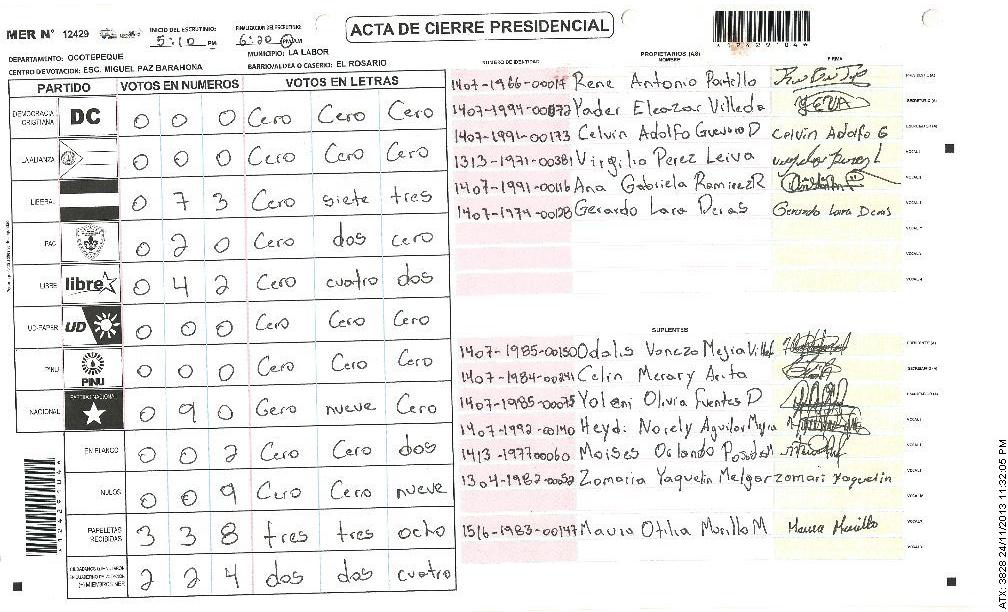 ACTA DE CIERRE PRESIDENCIAL
MER N° 12429
INICIO DEL ESCRUTINIO: 5:10 PM
FINALIZACION DEL ESCRUTINIO: 6:20 PM
DEPARTAMENTO: OCOTEPEQUE
MUNICIPIO: LA LABOR
CENTRO DE VOTACION: ESC. MIGUEL PAZ BARAHONA
BARRIO/ALDEA O CASERIO: EL ROSARIO
PARTIDO VOTOS EN NUMEROS VOTOS EN LETRAS
DEMOCRACIA CRISTIANA DC 0 0 0 Cero Cero Cero
LA ALIANZA 0 0 0 Cero Cero Cero
LIBERAL 0 7 3 Cero siete tres
PAC 0 2 0 Cero dos cero
LIBRE libre 0 4 2 Cero cuatro dos
UD-FAPER UD 0 0 0 Cero Cero Cero
PINU PINU 0 0 0 Cero Cero Cero
NACIONAL PARTIDO NACIONAL 0 9 0 Cero nueve Cero
EN BLANCO 0 0 2 Cero Cero dos
NULOS 0 0 9 Cero Cero nueve
PAPELETAS RECIBIDAS 3 3 8 tres tres ocho
2 2 4 dos dos cuatro
NUMERO DE IDENTIDAD PROPIETARIOS (AS) NOMBRE FIRMA
1407-1966-00017 Rene Antonio Portillo
1407-1994-00072 Yader Eleazar Villeda
1407-1991-00173 Celvin Adolfo Guerro D Celvin Adolfo G
1313-1971-00381 Virgilio Perez Leiva
1407-1991-00116 Ana Gabriela Ramirez R
1407-1974-00128 Gerardo Lara Deras Gerardo Lara Deras
SUPLENTES
1407-1985-00150 Odalis Vaneza Mejia
1407-1984-00241 Celin Merary Arita
1407-1985-00075 Yoleni Olivia Fuentes D
1407-1992-00140 Heydi Norely Aguilar Mejia
1413-1977-00060 Moises Orlando Posadas
1304-1982-00052 Zomaria Yaquelin Melgar zomari Yaquelin
1516-1983-00147 Maura Otilia Murillo M Maura Murillo
ATX: 3828 24/11/2013 11:32:05 PM